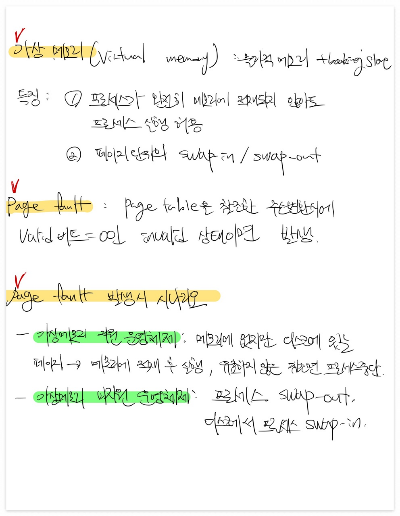 가상 메모리 (Virtual memory) : 물리적 메모리 + backing store
특징 : ① 프로세스가 완전히 메모리에 적재되지 않아도
프로세스 실행 허용
② 페이지 단위의 swap-in / swap-out
Page fault : Page table을 참조한 주소변환시에
Valid비트=0인 invalid 상태이면 발생.
Page fault 발생시 시나리오
- 가상메모리 지원 운영체제 : 메모리에 없지만 디스크에 있는
페이지 → 메모리에 적재 후 실행, 유효하지 않은 참조면 프로세스중단.
- 가상메모리 미지원 운영체제 : 프로세스 swap-out.
디스크에서 프로세스 swap-in.